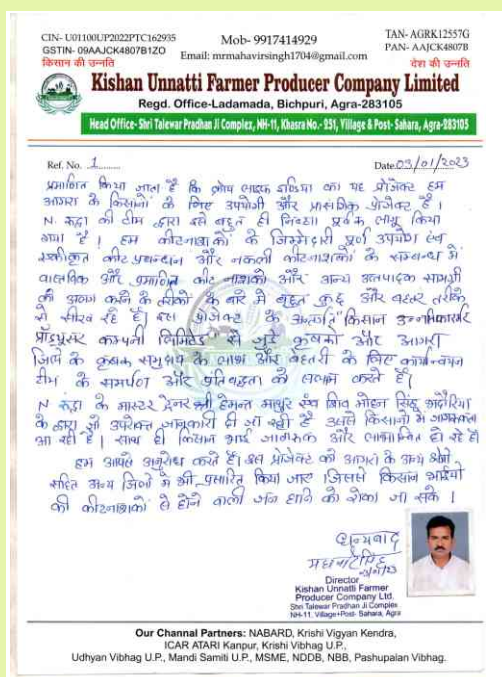 CIN- U01100UP2022PTC162935
TAN- AGRK12557G
GSTIN- 09AAJCK4807B1ZO
Mob- 9917414929
PAN- AAJCK4807B
Email: mrmahavirsingh1704@gmail.com
किसान की उन्नति
देश की उन्नति
Kishan Unnatti Farmer Producer Company Limited
Regd. Office-Ladamada, Bichpuri, Agra-283105
Head Office- Shri Talewar Pradhan Ji Complex, NH-11, Khasra No.- 251, Village & Post- Sahara, Agra-283105
Ref. No. 1
Date 03/01/2023
प्रमाणित किया जाता है कि क्रोप लाइफ इंडिया का यह प्रोजेक्ट हम
आगरा के किसानों के लिए उपयोगी और प्रासंगिक प्रोजेक्ट है।
N. रूद्रा की टीम द्वारा इसे बहुत ही निष्ठा पूर्वक लागू किया
गया है। हम कीटनाशकों के जिम्मेदारी पूर्ण उपयोग एवं
एकीकृत कीट प्रबन्धन और नकली कीटनाशकों के सम्बन्ध में
वास्तविक और प्रमाणित कीट नाशकों और अन्य उत्पादक सामग्री
को अलग करने के तरीकों के बारे में बहुत कुछ और बेहतर तरीके
से सीख रहे हैं। इस प्रोजेक्ट के अन्तर्गत किसान उन्नति फार्मर
प्रोड्यूसर कम्पनी लिमिटेड से जुड़े कृषकों और आगरा
जिले के कृषक समुदाय के लाभ और बेहतरी के लिए कार्यान्वयन
टीम के समर्पण और प्रतिबद्धता को सलाम करते हैं।
N रूद्रा के मास्टर ट्रेनर श्री हेमन्त माथुर एवं शिव मोहन सिंह भदौरिया
के द्वारा जो उपरोक्त जानकारी दी जा रही है उससे किसानों में जागरूकता
आ रही है। साथ ही किसान भाई जागरूक और लाभान्वित हो रहे हैं
हम आपसे अनुरोध करते हैं। इस प्रोजेक्ट को आगरा के अन्य क्षेत्रों
सहित अन्य जिलों में भी प्रसारित किया जाए। जिससे किसान भाईयों
की कीटनाशकों से होने वाली जन हानि को रोका जा सके।
धन्यवाद
महावीर सिंह
Director
Kishan Unnatti Farmer
Producer Company Ltd.
Shri Talewar Pradhan Ji Complex
NH-11, Village+Post- Sahara, Agra
Our Channal Partners: NABARD, Krishi Vigyan Kendra,
ICAR ATARI Kanpur, Krishi Vibhag U.P.,
Udhyan Vibhag U.P., Mandi Samiti U.P., MSME, NDDB, NBB, Pashupalan Vibhag.